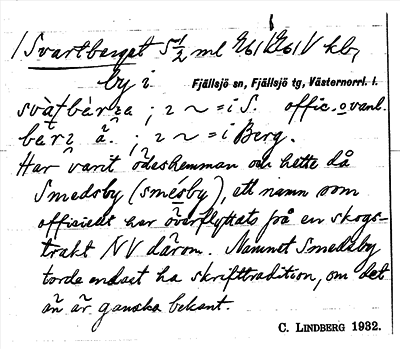 Svartberget 5 1/2 ml
by i Fjällsjö sn, Fjällsjö tg, Västernorrl. l.
; 2 ~ = i S. offic. o vanl.
; 2 ~ = i Berg.
Har varit ödeshemman och hette då
Smedsby (smesby), ett namn som
officiellt har överflyttats på en skogs-
trakt NV därom. Namnet Smedsby
torde endast ha skrifttradition, om det
än är ganska bekant.
C. LINDBERG 1932.